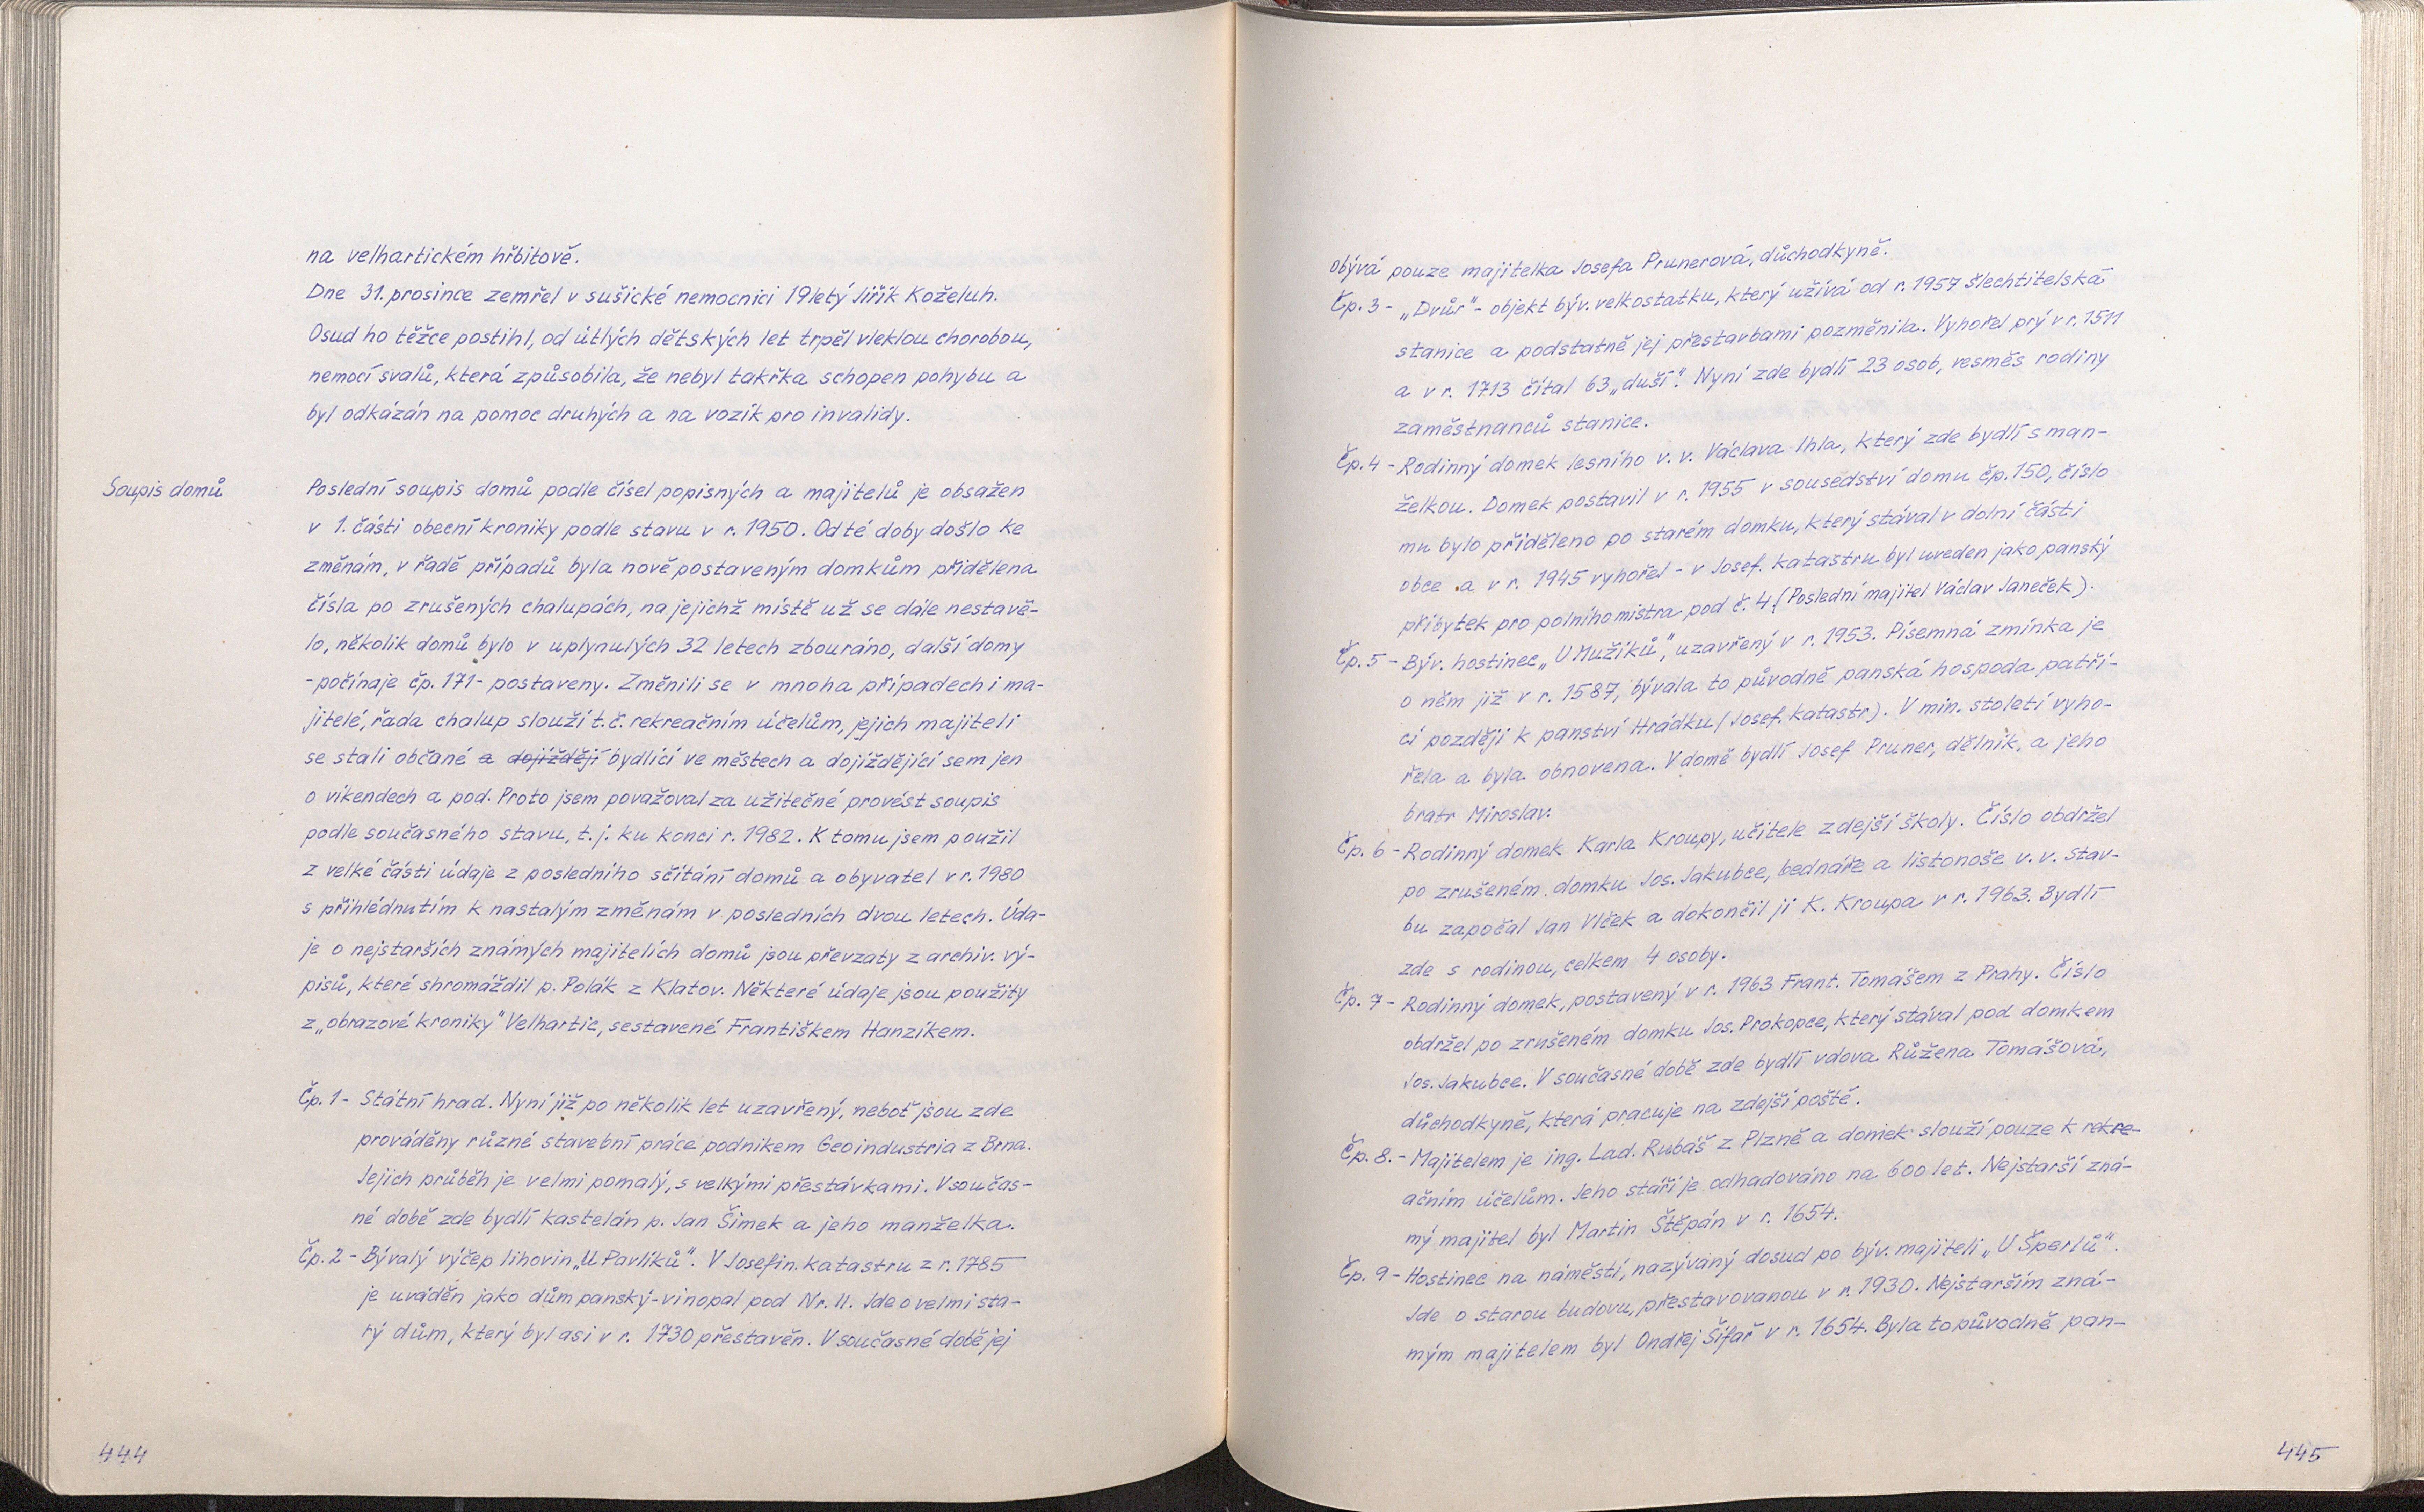 na velhartickém hřbitově.
Dne 31. prosince zemřel v sušické nemocnici 19letý Jiřík Koželuh.
Osud ho těžce postihl, od útlých dětských let trpěl vleklou chorobou,
nemocí svalů, která způsobila, že nebyl takřka schopen pohybu a
byl odkázán na pomoc druhých a na vozík pro invalidy.
Soupis domů
Poslední soupis domů podle čísel popisných a majitelů je obsažen
v 1. části obecní kroniky podle stavu v r. 1950. Od té doby došlo ke
změnám, v řadě případů byla nově postaveným domkům přidělena
čísla po zrušených chalupách, na jejichž místě už se dále nestavě-
lo, několik domů bylo v uplynulých 32 letech zbouráno, další domy
-počínaje čp. 171- postaveny. Změnili se v mnoha případech i ma-
jitelé, řada chalup slouží t.č. rekreačním účelům, jejich majiteli
se stali občané a dojíždějí bydlící ve městech a dojíždějící sem jen
o víkendech a pod. Proto jsem považoval za užitečné provést soupis
podle současného stavu, t.j. ku konci r. 1982. K tomu jsem použil
z velké části údaje z posledního sčítání domů a obyvatel v r. 1980
s přihlédnutím k nastalým změnám v posledních dvou letech. Úda-
je o nejstarších známých majitelích domů jsou převzaty z archiv. vý-
pisů, které shromáždil p. Polák z Klatov. Některé údaje jsou použity
z „obrazové kroniky" Velhartic, sestavené Františkem Hanzíkem.
Čp. 1 - Státní hrad. Nyní již po několik let uzavřený, neboť jsou zde
prováděny různé stavební práce podnikem Geoindustria z Brna.
Jejich průběh je velmi pomalý, s velkými přestávkami. V součas-
né době zde bydlí kastelán p. Jan Šimek a jeho manželka.
Čp. 2 - Bývalý výčep lihovin „U Pavlíků". V Josefin. katastru z r. 1785
je uváděn jako dům panský-vinopal pod Nr. II. Jde o velmi sta-
rý dům, který byl asi v r. 1730 přestavěn. V současné době jej
444
obývá pouze majitelka Josefa Prunerová, důchodkyně.
Čp. 3 - „Dvůr" - objekt býv. velkostatku, který užívá od r. 1957 šlechtitelská
stanice a podstatně jej přestavbami pozměnila. Vyhořel prý v r. 1511
a v r. 1713 čítal 63 „duší". Nyní zde bydlí 23 osob, vesměs rodiny
zaměstnanců stanice.
Čp. 4 - Rodinný domek lesního v. v. Václava Ihla, který zde bydlí s man-
želkou. Domek postavil v r. 1955 v sousedství domu čp. 150, číslo
mu bylo přiděleno po starém domku, který stával v dolní části
obce a v r. 1945 vyhořel - v Josef. katastru byl uveden jako panský
příbytek pro polního mistra pod č. 4. (Poslední majitel Václav Janeček).
Čp. 5 - Býv. hostinec „U Mužíků", uzavřený v r. 1953. Písemná zmínka je
o něm již v r. 1587, bývala to původně panská hospoda patří-
cí později k panství Hrádku (Josef. katastr). V min. století vyho-
řela a byla obnovena. V domě bydlí Josef Pruner, dělník, a jeho
bratr Miroslav.
Čp. 6 - Rodinný domek Karla Kroupy, učitele zdejší školy. Číslo obdržel
po zrušeném domku Jos. Jakubce, bednáře a listonoše v. v. Stav-
bu započal Jan Vlček a dokončil ji K. Kroupa v r. 1963. Bydlí
zde s rodinou, celkem 4 osoby.
Čp. 7 - Rodinný domek, postavený v r. 1963 Frant. Tomášem z Prahy. Číslo
obdržel po zrušeném domku Jos. Prokopce, který stával pod domkem
Jos. Jakubce. V současné době zde bydlí vdova Růžena Tomášová,
důchodkyně, která pracuje na zdejší poště.
Čp. 8. - Majitelem je ing. Lad. Rubáš z Plzně a domek slouží pouze k rekre-
ačním účelům. Jeho stáří je odhadováno na 600 let. Nejstarší zná-
mý majitel byl Martin Štěpán v r. 1654.
Čp. 9 - Hostinec na náměstí, nazývaný dosud po býv. majiteli „U Šperlů".
Jde o starou budovu, přestavovanou v r. 1930. Nejstarším zná-
mým majitelem byl Ondřej Šifař v r. 1654. Byla to původně pan-
445